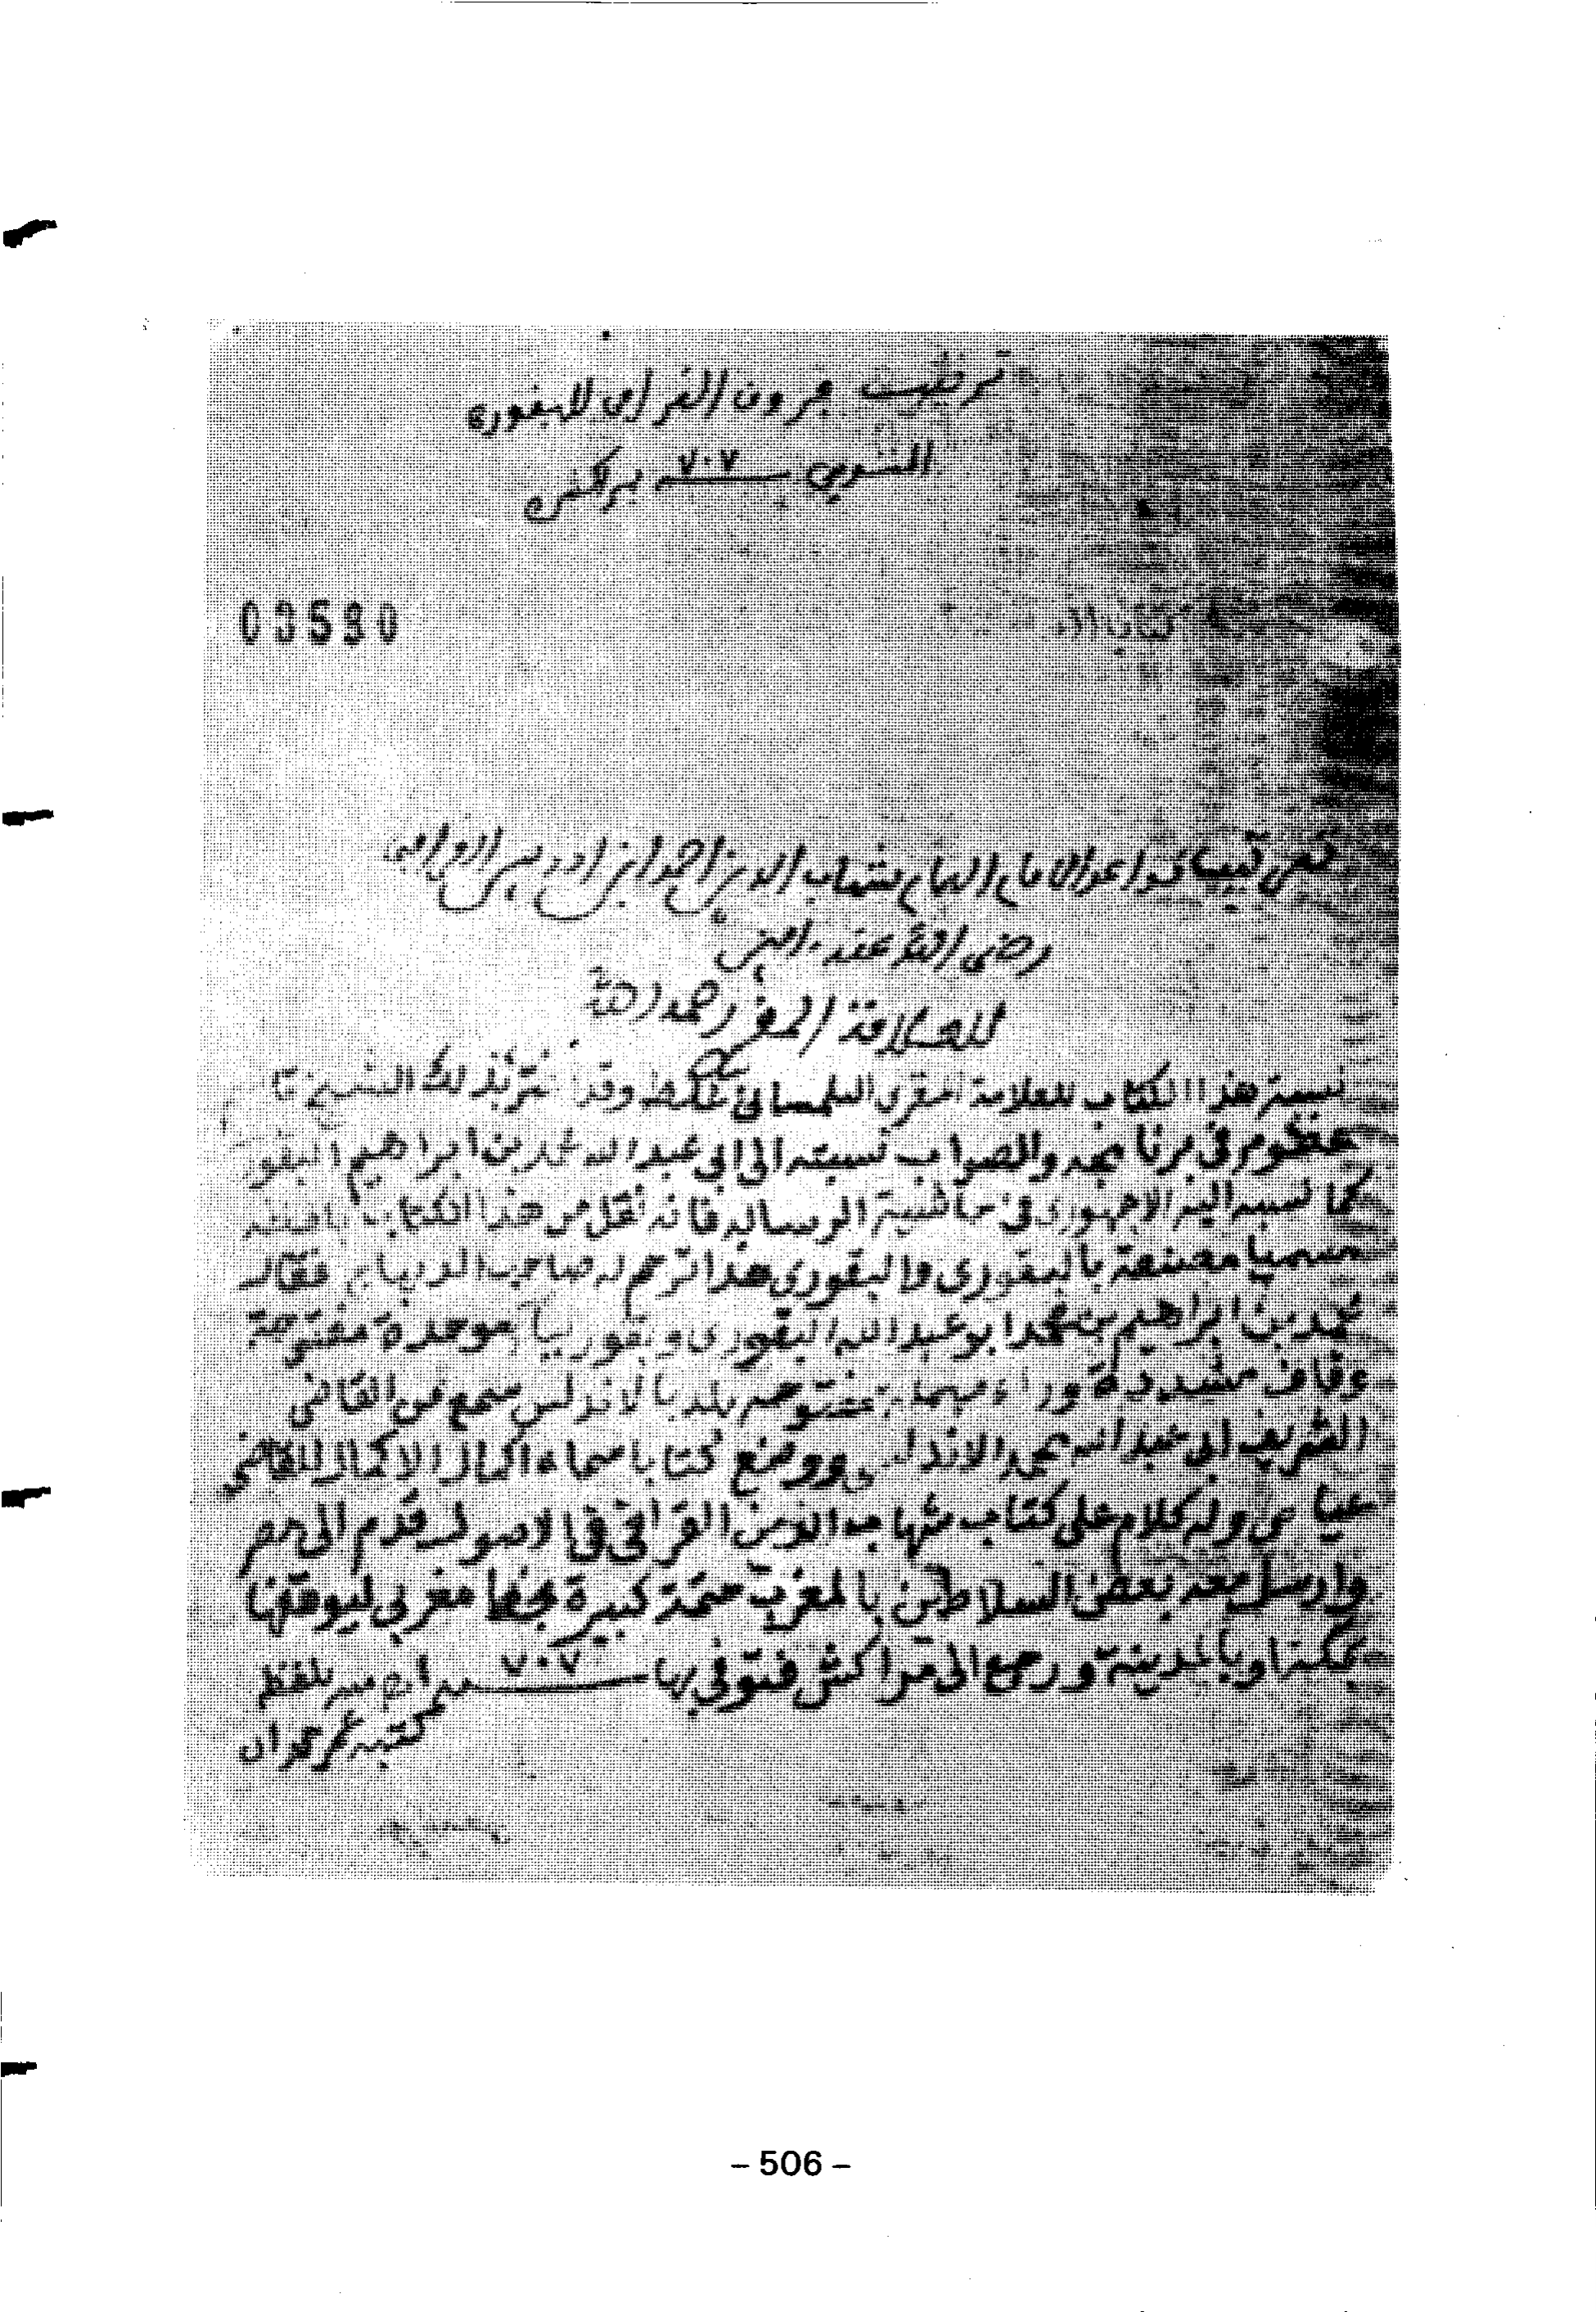 ترتيب فروق القرافي للبقوري
المتوفى ٧٠٧ بمراكش
03590
كتاب
ترتيب قواعد الامام الهمام شهاب الدين احمد ابن ادريس القرافي
رضى الله عنه امين
للعلامة المقري رحمه الله
نسبة هذا الكتاب للعلامة المقري التلمساني غلط وقد اغتر بذلك الشيخ
عظوم في برنامجه والصواب نسبته الى ابي عبد الله محمد بن ابراهيم البقور
كما نسبه اليه الاجهوري في حاشية الرسالة فانه نقل من هذا الكتاب
مسميا مصنفه بالبقوري والبقوري هذا ترجم له صاحب الديباج فقال
محمد بن ابراهيم بن محمد ابو عبد الله البقوري وبقور بباء موحدة مفتوحة
وقاف مشددة وراء مهملة مفتوحه بلد بالاندلس سمع من القاضي
الشريف ابي عبد الله محمد الاندلسي ووضع كتابا سماه اكمال الاكمال للقاضي
عياض وله كلام على كتاب شهاب الدين القرافي في الاصول قدم الى مصر
وارسل معه بعض السلاطين بالمغرب ختمة كبيرة بخط مغربي ليوقفها
بمكة او بالمدينة ورجع الى مراكش فتوفي بها سنة ٧٠٧ بلفظ
كتبه
- 506 -